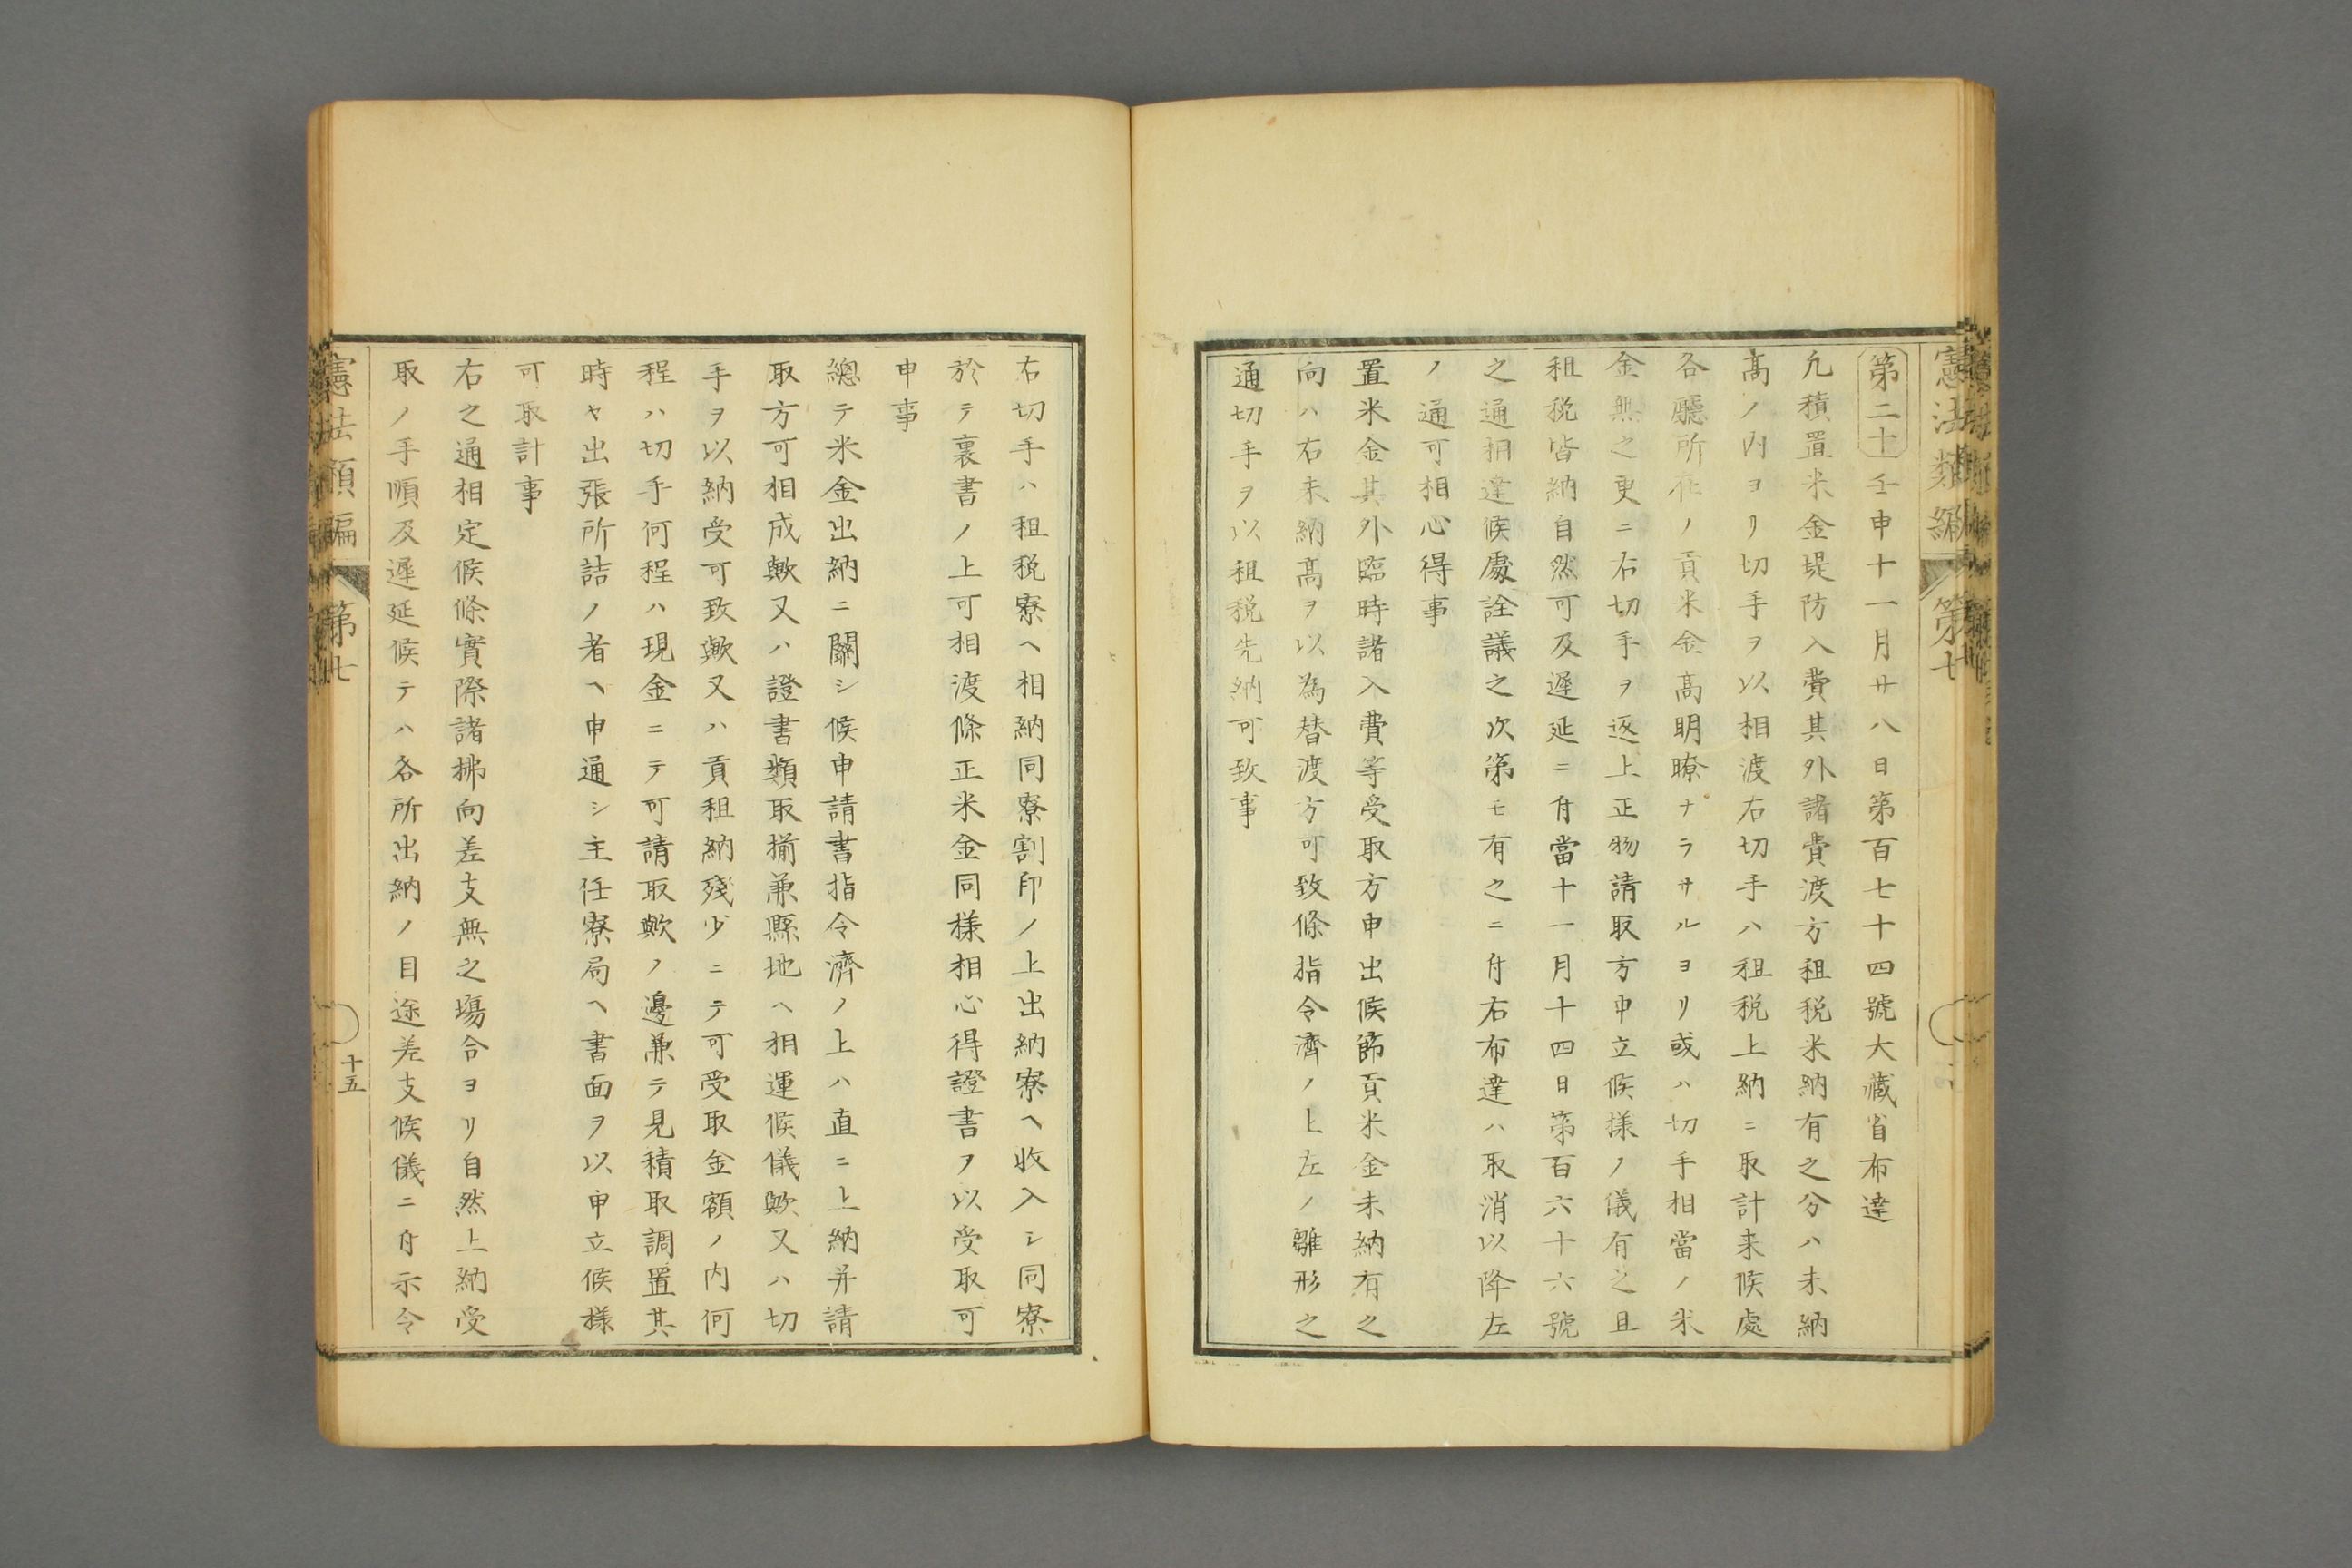 憲法類編 第七
第二十 壬申十一月廿八日第百七十四號大藏省布達
凢積置米金堤防入費其外諸費渡方租税米納有之分ハ未納
髙ノ内ヨリ切手ヲ以相渡右切手ハ租税上納ニ取計来候處
各廳所化ノ貢米金髙明瞭ナラサルヨリ或ハ切手相當ノ米
金無之更ニ右切手ヲ返上正物請取方申立候樣ノ儀有之且
租税皆納自然可及遲延ニ付當十一月十四日第百六十六號
之通相達候處詮議之次第モ有之ニ付右布達ハ取消以降左
ノ通可相心得事
置米金其外臨時諸入費等受取方申出候節貢米金未納有之
向ハ右未納髙ヲ以為替渡方可致條指令濟ノ上左ノ雛形之
通切手ヲ以租税先納可致事
右切手ハ租税寮ヘ相納同寮割印ノ上出納寮ヘ收入シ同寮
於テ裏書ノ上可相渡條正米金同樣相心得證書ヲ以受取可
申事
總テ米金出納ニ關シ候申請書指令濟ノ上ハ直ニ上納并請
取方可相成歟又ハ證書類取揃兼縣地ヘ相運候儀歟又ハ切
手ヲ以納受可致歟又ハ貢租納殘少ニテ可受取金額ノ内何
程ハ切手何程ハ現金ニテ可請取歟ノ邊兼テ見積取調置其
時々出張所詰ノ者ヘ申通シ主任寮局ヘ書面ヲ以申立候樣
可取計事
右之通相定候條實際諸拂向差支無之塲合ヨリ自然上納受
取ノ手順及遲延候テハ各所出納ノ目途差支候儀ニ付示令
憲法類編 第七 十五